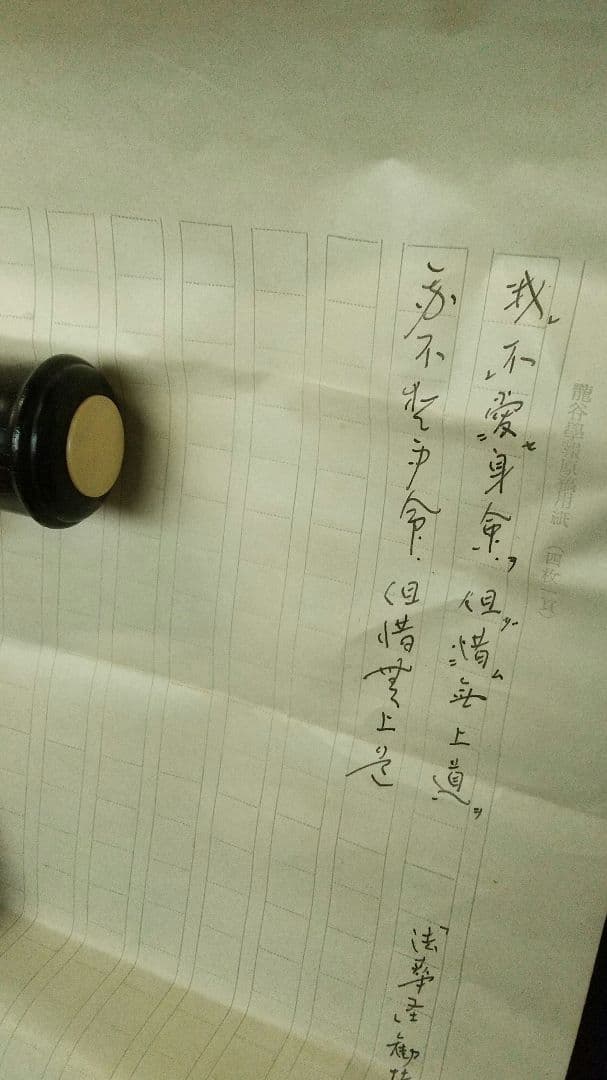 龍谷學報原稿用紙 (四枚一頁)
我不愛身命但惜無上道
不命但惜無上道
「法華経勧持